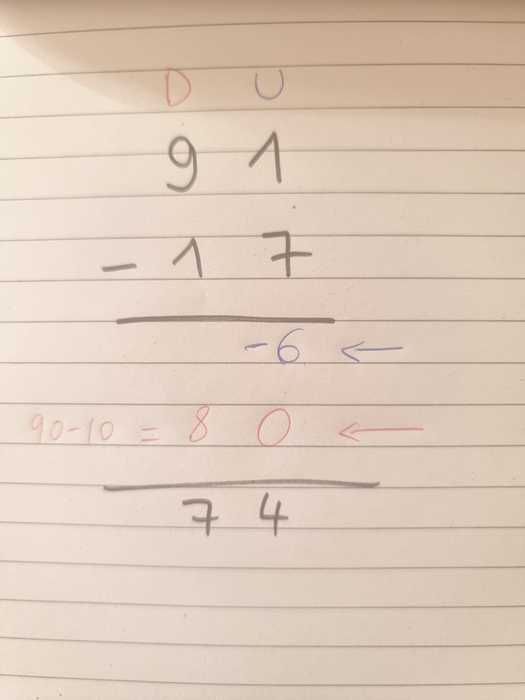 D U
91
- 17
-6 ←
90-10 = 80 ←
74